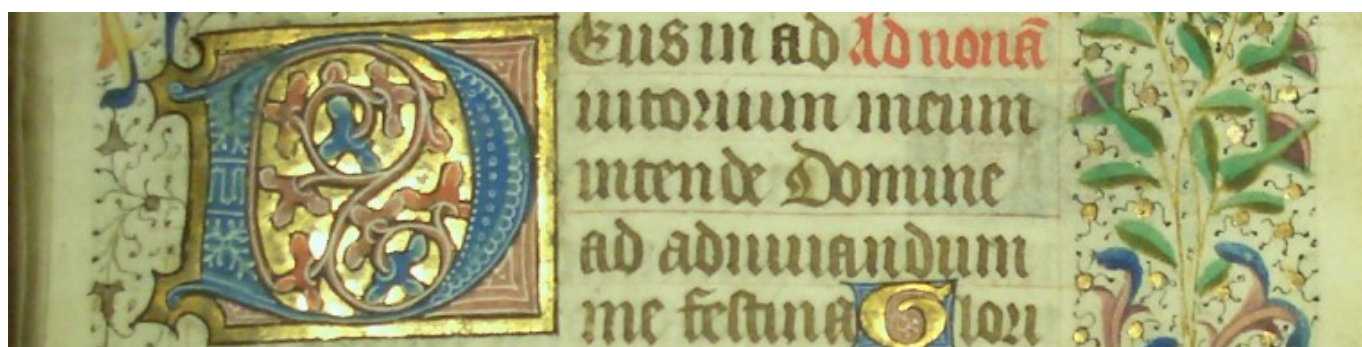 Deus in ad Ad nonā
iutorium meum
intende Domine
ad adiuuandum
me festina Glori